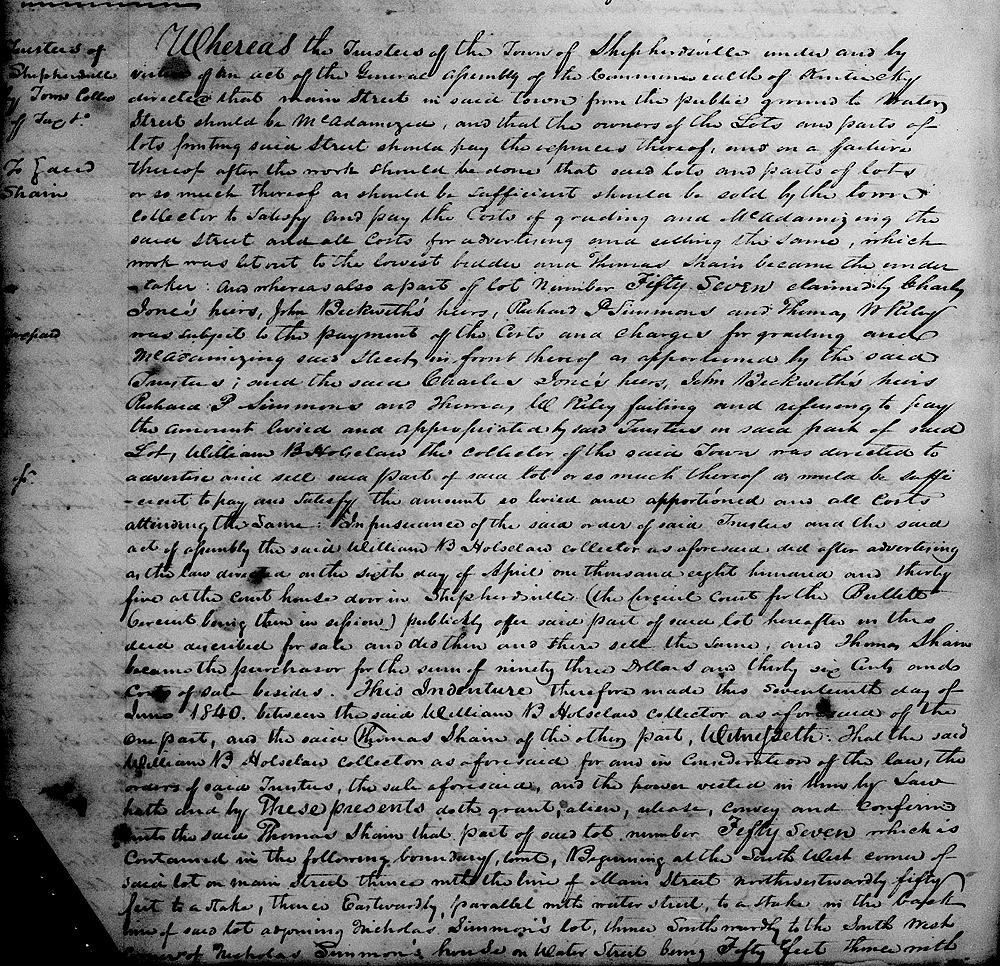 Trustees of
Shepherdsville
by Town Collec
To
Shain
Whereas the Trustees of the Town of Shepherdsville under and by
virtue of an act of the General assembly of the Commonwealth of Kentucky
directed that main Street in said town from the public ground to Water
Street should be McAdamized, and that the owners of the Lots and parts of
lots fronting said Street should pay the expences thereof, and on a failure
thereof after the work should be done that said lots and parts of lots
or so much thereof as should be sufficient should be sold by the town
collector to satisfy and pay the Costs of grading and McAdamizing the
said Street and all Costs for advertising and selling the same, which
work was let out to the lowest bidder and Thomas Shain became the under
-taker: and whereas also a part of lot Number Fifty Seven claimed by Charles
Jone's heirs, John Beckwith's heirs, Richard P Simmons and Thomas W Riley
was subject to the payment of the Costs and charges for grading and
McAdamizing said Street, in front thereof as apportioned by the said
Trustees; and the said Charles Jone's heirs, John Beckwith's heirs
Richard P Simmons and Thomas W Riley failing and refusing to pay
the amount levied and appropriated by said Trustees on said part of said
Lot, William B Holsclaw the collector of the said Town was directed to
advertise and sell said part of said lot or so much thereof as would be suffi
-cient to pay and satisfy the amount so levied and apportioned and all Costs
attending the same: In pursuance of the said order of said Trustees and the said
act of assembly the said William B Holsclaw collector as aforesaid did after advertising
as the law directed on the sixth day of April one thousand eight hundred and thirty
five at the court house door in Shepherdsville (the Circuit Court for the Bullett
Circuit being then in session) publickly offer said part of said lot hereafter in this
deed described for sale and did then and there sell the same, and Thomas Shain
became the purchasor for the sum of ninety three Dollars and thirty six Cents and
Costs of sale besides. This Indenture therefore made this seventeenth day of
June 1840. between the said William B Holsclaw collector as aforesaid of the
one part, and the said Thomas Shain of the other part, Witnesseth: That the said
William B Holsclaw collector as aforesaid for and in Consideration of the law, the
orders of said Trustees, the sale aforesaid, and the power vested in him by Law
hath and by These presents doth grant, alien, release, convey and Confirm
unto the said Thomas Shain that part of said lot number Fifty Seven which is
Contained in the following boundary, towit, Beginning at the South West corner of
said lot on main Street thence with the line of Main Street northwestwardly fifty
feet to a stake, thence Eastwardly, parallel with water street, to a stake in the back
line of said lot adjoining Nicholas Simmon's lot, thence Southwardly to the South West
corner of Nicholas Simmon's house on Water Street being Fifty feet thence with